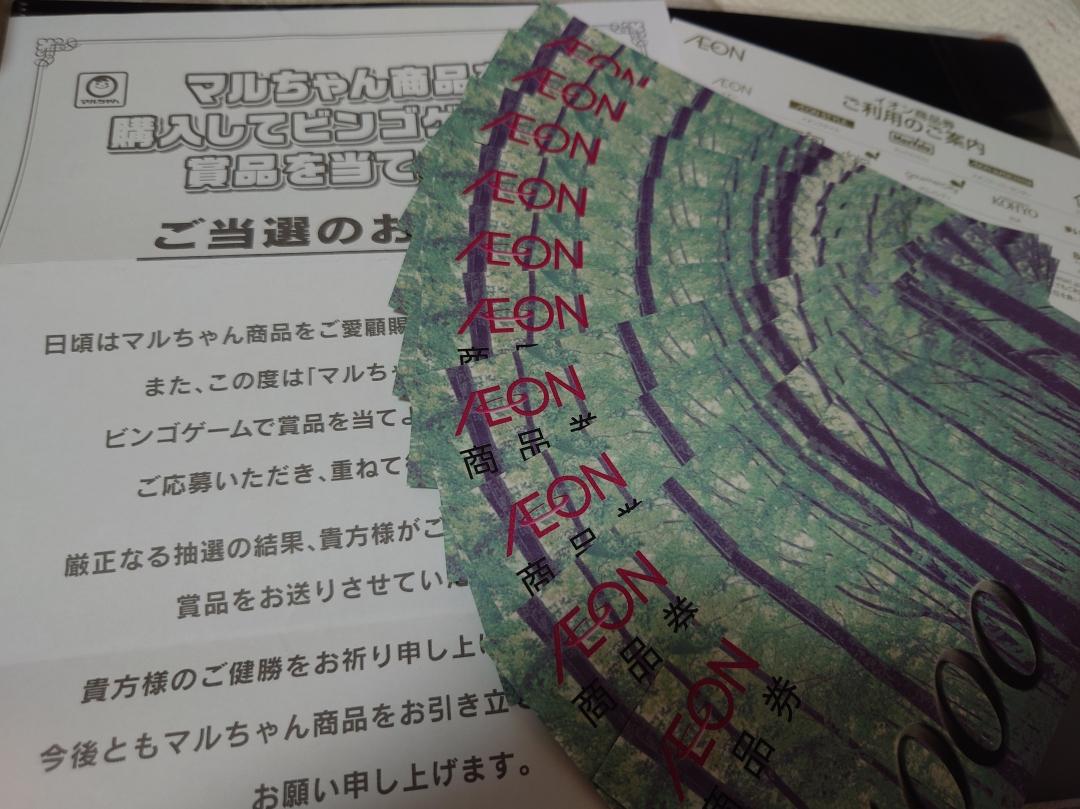 マルちゃん
マルちゃん商品
購入してビンゴゲ
賞品を当て
ご当選のお
日頃はマルちゃん商品をご愛顧賜
また、この度は「マルちゃ
ビンゴゲームで賞品を当てよ
ご応募いただき、重ねて
厳正なる抽選の結果、貴方様がご
賞品をお送りさせてい
貴方様のご健勝をお祈り申し上げ
今後ともマルちゃん商品をお引き立
お願い申し上げます。
ÆON
ÆON
イオン商品券
ご利用のご案内
KOHYO
ÆON
ÆON
ÆON
ÆON
ÆON
ÆON
ÆON
商品
ÆON
商
ÆON
商品券
ÆON
商品券
000